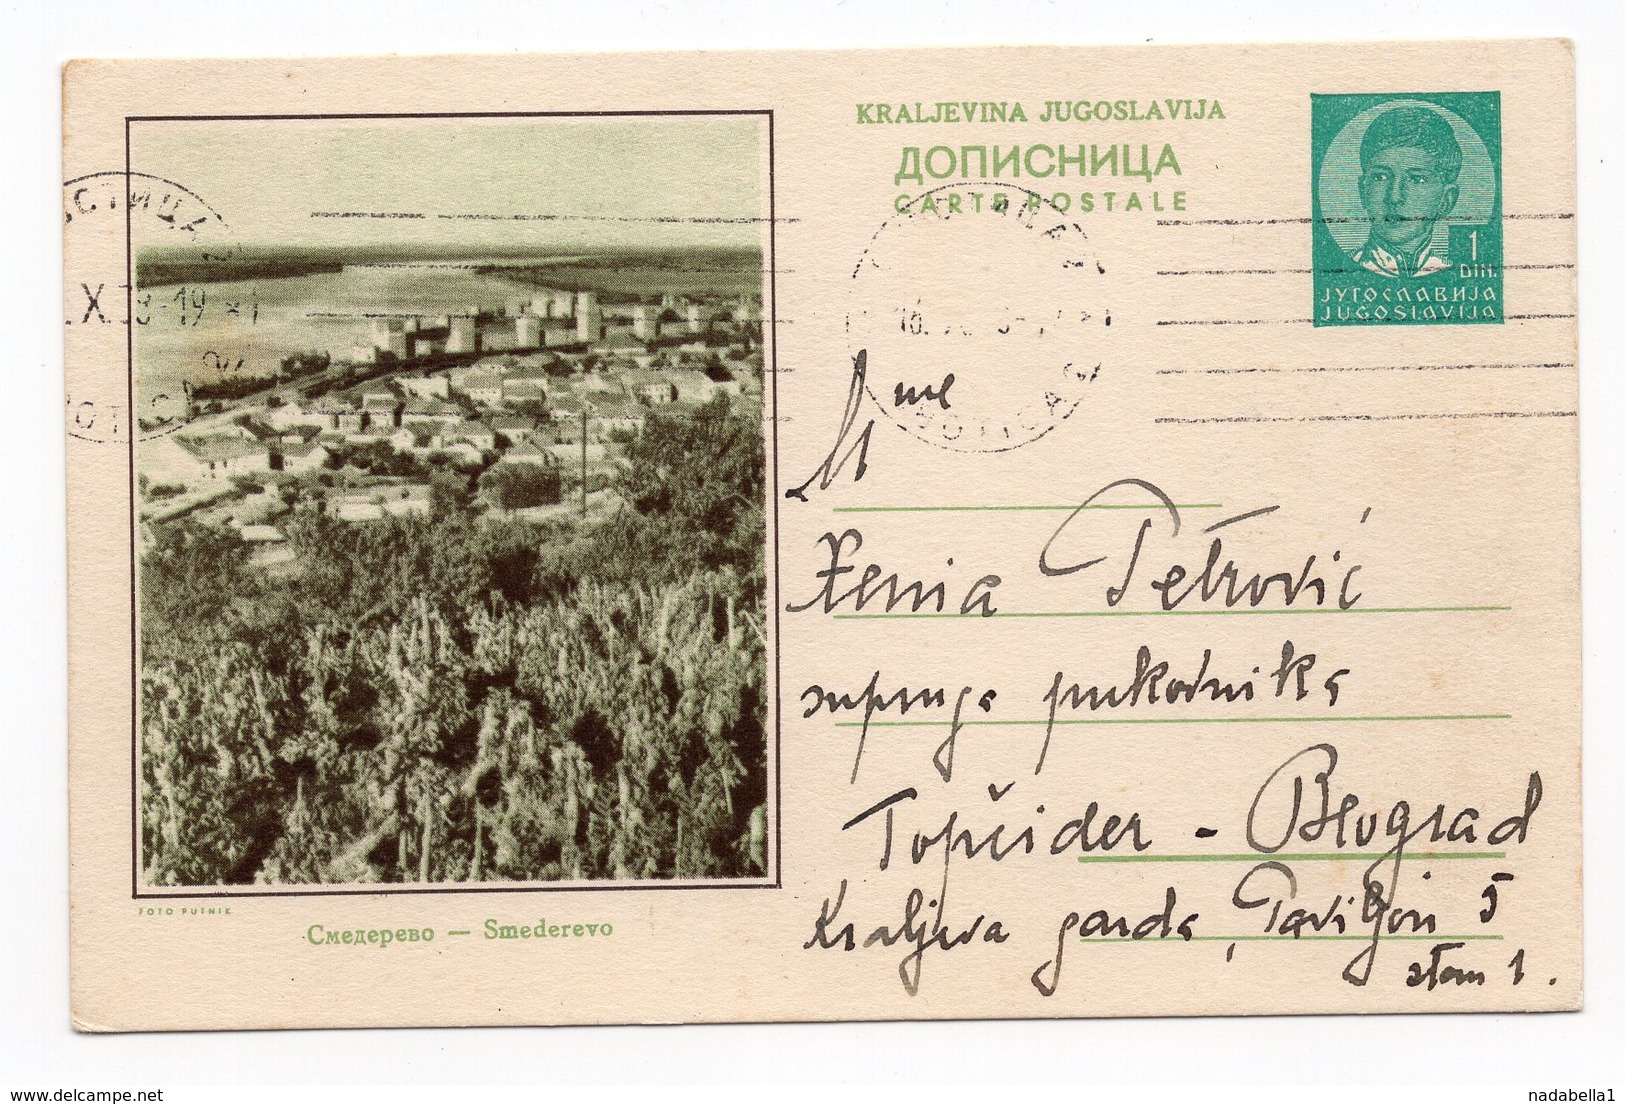 KRALJEVINA JUGOSLAVIJA
ДОПИСНИЦА
CARTE POSTALE
1
DIN.
ЈУГОСЛАВИЈА
JUGOSLAVIJA
X
-19
Mme
Xenia Petrović
supruga pukovnika
Topčider - Beograd
Kraljeva garda, Paviljon 5
stan 1.
FOTO PUTNIK
Смедерево — Smederevo
nadabella1